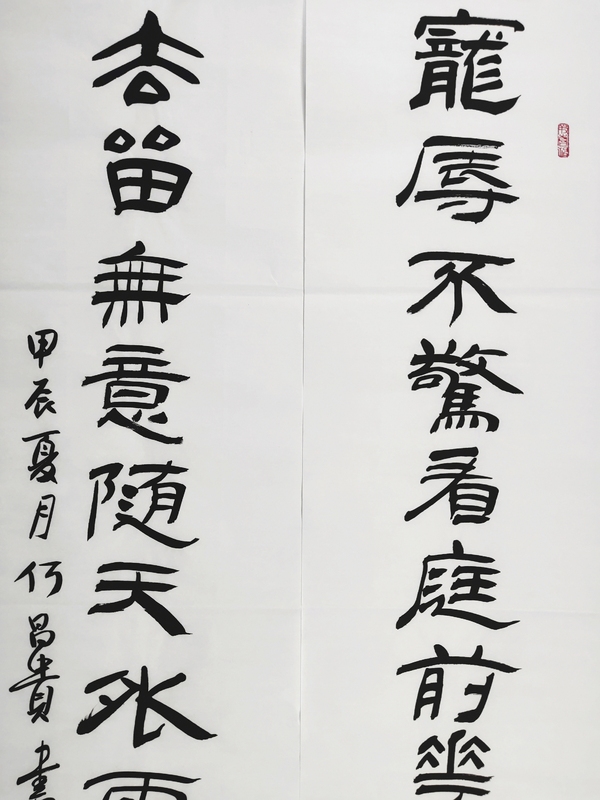 寵辱不驚看庭前華
去留無意隨天外雨
甲辰夏月何昌貴書